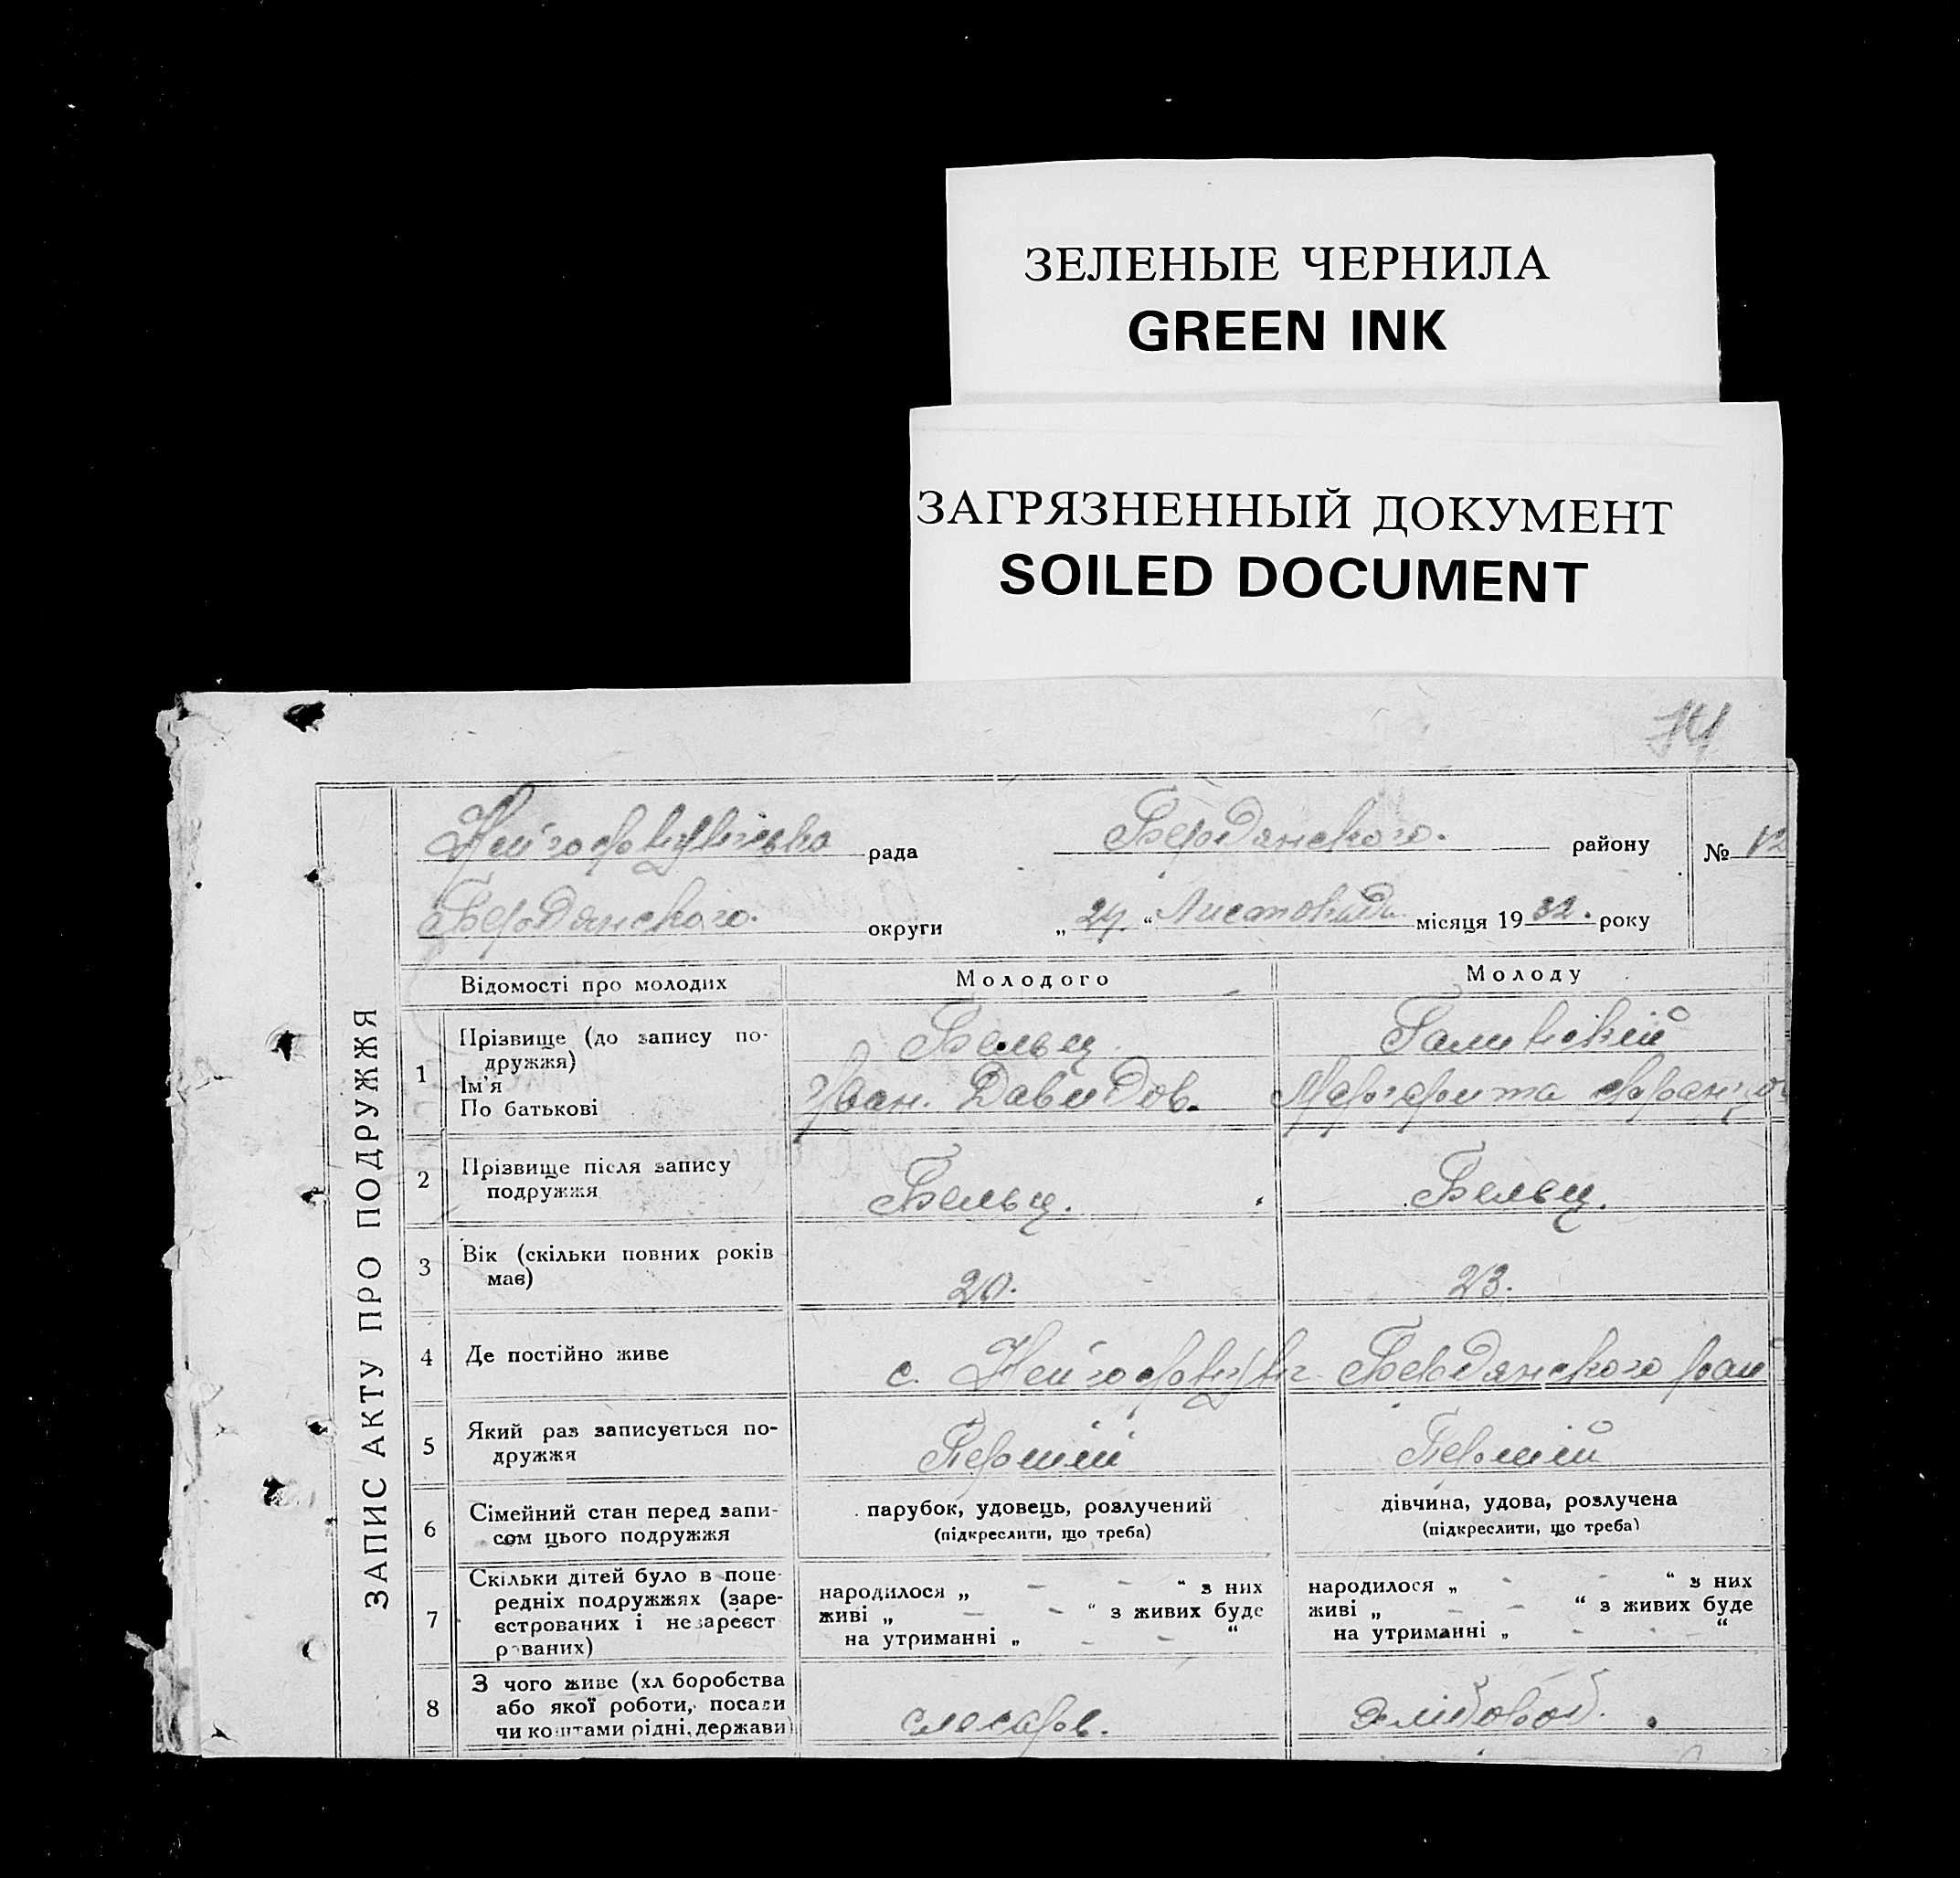 ЗЕЛЕНЫЕ ЧЕРНИЛА
GREEN INK
ЗАГРЯЗНЕННЫЙ ДОКУМЕНТ
SOILED DOCUMENT
ЗАПИС АКТУ ПРО ПОДРУЖЖЯ
рада Бердянского. району № 12
Бердянского. округи „ 24. “ Листопада місяця 1932. року
Відомості про молодих Молодого Молоду
1 Прізвище (до запису по-
дружжя)
Ім'я
По батькові
Бельц
Іван. Давидов.
Маргарита
2 Прізвище після запису
подружжя
Бельц. Бельц.
3 Вік (скільки повних років
має)
20. 23.
4 Де постійно живе с. Бердянского рай
5 Який раз записується по-
дружжя
Перший Перший
6 Сімейний стан перед запи-
сом цього подружжя
парубок, удовець, розлучений
(підкреслити, що треба)
дівчина, удова, розлучена
(підкреслити, що треба)
7 Скільки дітей було в попе-
редніх подружжях (заре-
естрованих і незареєст
рованих)
народилося „ - - “ з них
живі „ - - “ з живих буде
на утриманні „ - - “
народилося „ - - “ з них
живі „ - - “ з живих буде
на утриманні „ - - “
8 З чого живе (хліборобства
або якої роботи, посади
чи коштами рідні, держави)
слесарь.